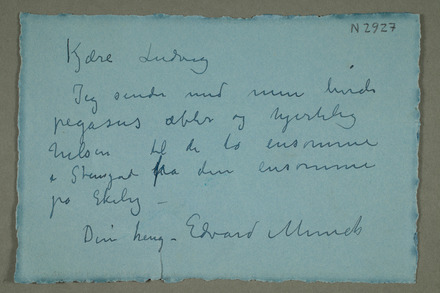 N 2927
Kjære Ludvig
Jeg sender med min hvide
pegasus æbler og hjertelig
hilsen til de to ensomme
i Stengad fra den ensomme
på Ekely –
Din heng. Edvard Munch